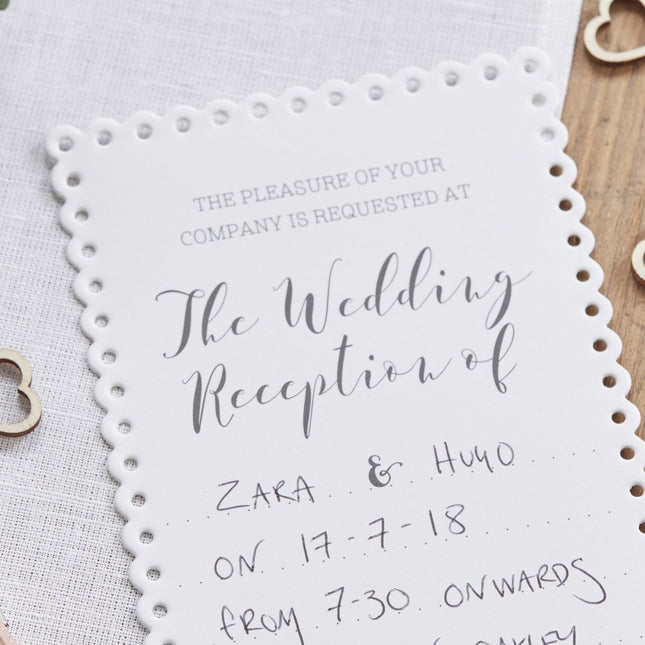 THE PLEASURE OF YOUR
COMPANY IS REQUESTED AT
The Wedding
Reception of
ZARA & HUGO
ON 17-7-18
FROM 7-30 ONWARDS
OAKLEY